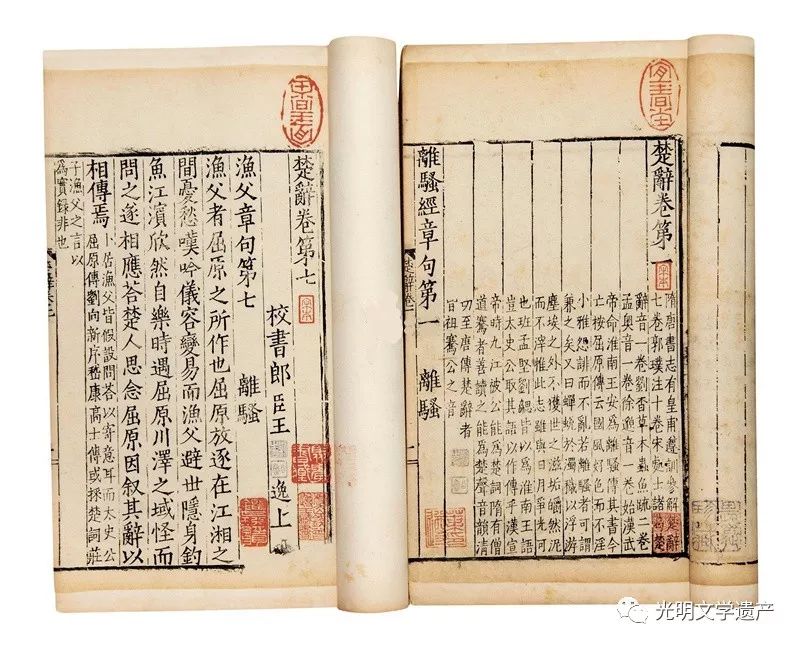 楚辭卷第一
隋唐書志有皇甫遵訓參解楚辭
七卷郭璞注十卷宋處士諸葛楚
辭音一卷劉杳草木蟲魚疏二卷
孟奥音一卷徐邈音一卷始漢武
帝命淮南王安爲離騷傳其書今
亡按屈原傳云國風好色而不淫
小雅怨誹而不亂若離騷者可謂
兼之矣又曰蟬蛻於濁穢以浮游
塵埃之外不獲世之滋垢皭然泥
而不滓推此志雖與日月爭光可
也班孟堅劉勰皆以爲淮南王語
豈太史公取其語以作傳乎漢宣
帝時九江被公能爲楚詞隋有僧
道騫者善讀之能爲楚聲音韻清
切至唐傳楚辭者
皆祖騫公之音
離騷經章句第一 離騷
楚辭卷第七
校書郎臣王 逸上
漁父章句第七 離騷
漁父者屈原之所作也屈原放逐在江湘之
間憂愁嘆吟儀容變易而漁父避世隱身釣
魚江濱欣然自樂時遇屈原川澤之域怪而
問之遂相應荅楚人思念屈原因叙其辭以
相傳焉
卜居漁父皆假設問荅以寄意耳而太史公
屈原傳劉向新序嵇康高士傳或採楚詞莊
子漁父之言以
爲實錄非也
光明文学遗产